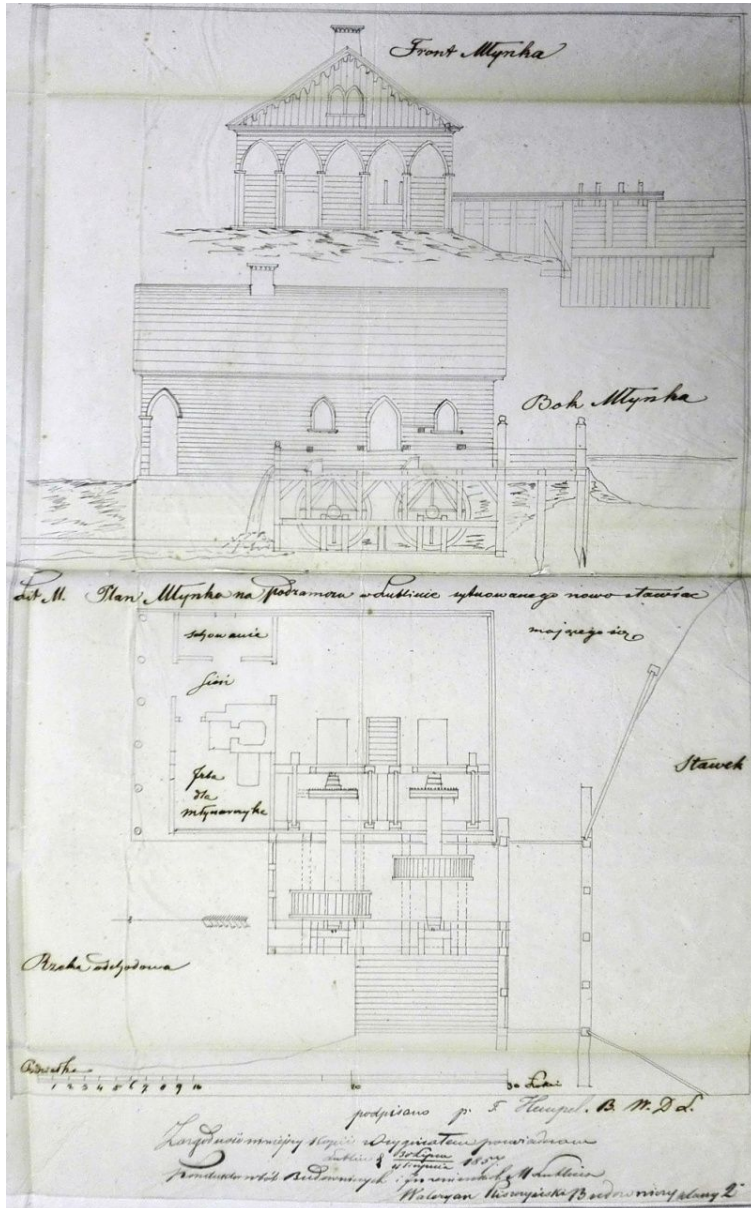 Front Młynka
Bok Młynka
Lit M. Plan Młynka na podzamczu w Lublinie sytuowanego nowo stawiać
mającego się
schowanie
Sień
Izba
dla
młynarczyka
Stawek
Rzeka odchodowa
Podziałka
1 2 3 4 5 6 7 8 9 10 20 30 Łokci
podpisano p. F. Hempel. B. W. D L.
Zgodność niniejszej kopii z oryginałem poświadczam
Lublin d 30 Lipca
185
Konduktor Robót Budowniczych M Lublina
Waleryan Budowniczy klassy 2